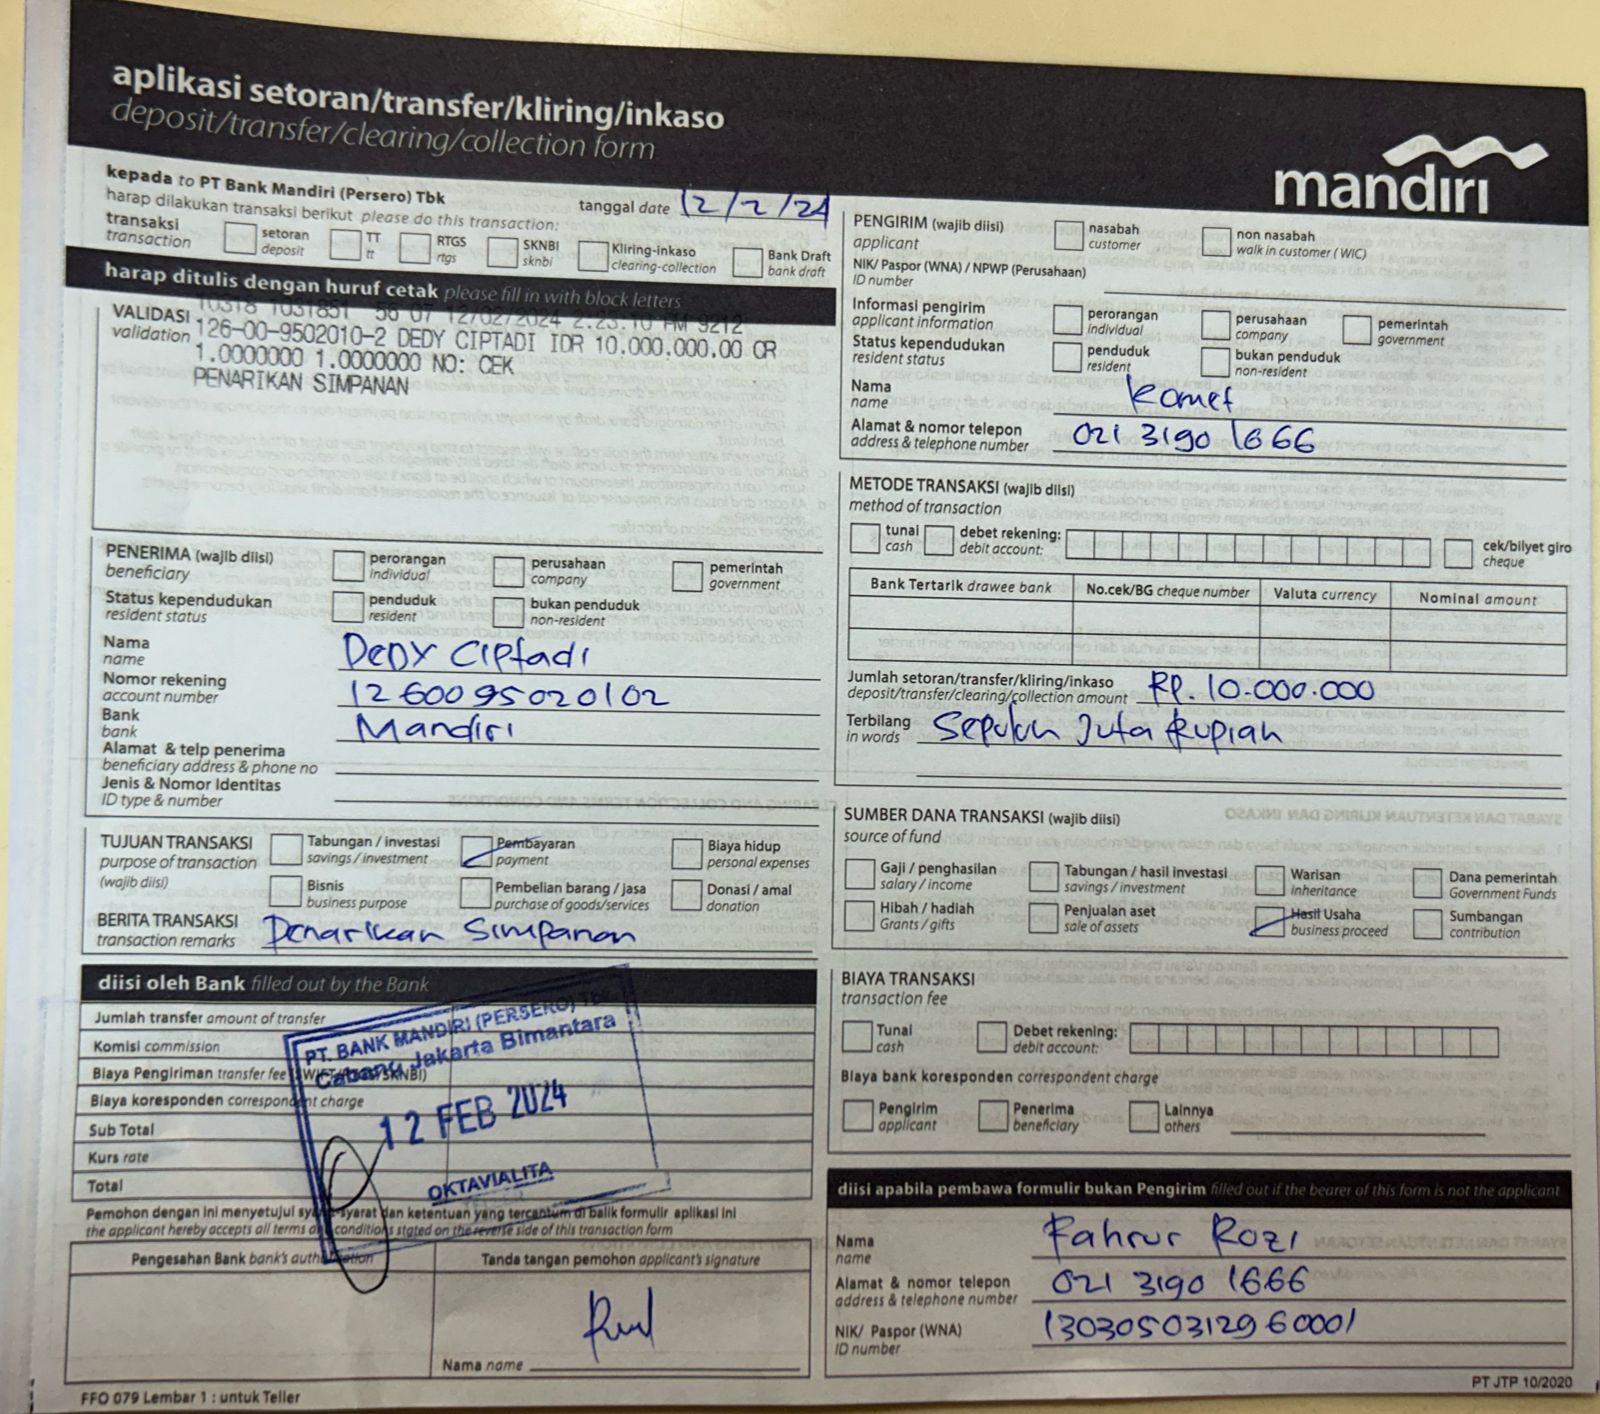 aplikasi setoran/transfer/kliring/inkaso
deposit/transfer/clearing/collection form
mandiri
kepada to PT Bank Mandiri (Persero) Tbk
tanggal date 12/2/24
harap dilakukan transaksi berikut please do this transaction:
transaksi
transaction
setoran
deposit
TT
tt
RTGS
rtgs
SKNBI
sknbi
Kliring-inkaso
clearing-collection
Bank Draft
bank draft
harap ditulis dengan huruf cetak please fill in with block letters
VALIDASI
validation
12/02/2024 2:23:10 PM 9212
126-00-9502010-2 DEDY CIPTADI IDR 10.000.000,00 CR
1.0000000 1.0000000 NO: CEK
PENARIKAN SIMPANAN
PENERIMA (wajib diisi)
beneficiary
perorangan
individual
perusahaan
company
pemerintah
government
Status kependudukan
resident status
penduduk
resident
bukan penduduk
non-resident
Nama
name
DEDY CIPtadi
Nomor rekening
account number
1260095020102
Bank
bank
Mandiri
Alamat & telp penerima
beneficiary address & phone no
Jenis & Nomor Identitas
ID type & number
TUJUAN TRANSAKSI
purpose of transaction
(wajib diisi)
Tabungan / investasi
savings / investment
Pembayaran
payment
Biaya hidup
personal expenses
Bisnis
business purpose
Pembelian barang / jasa
purchase of goods/services
Donasi / amal
donation
BERITA TRANSAKSI
transaction remarks
Penarikan Simpanan
diisi oleh Bank filled out by the Bank
Jumlah transfer amount of transfer
Komisi commission
Biaya Pengiriman transfer fee
Biaya koresponden correspondent charge
Sub Total
Kurs rate
Total
PT. BANK MANDIRI (PERSERO)
Cabang Jakarta Bimantara
12 FEB 2024
OKTAVIALITA
Pemohon dengan ini menyetujui syarat-syarat dan ketentuan yang tercantum di balik formulir aplikasi ini
the applicant hereby accepts all terms and conditions stated on the reverse side of this transaction form
Pengesahan Bank bank's authorization
Tanda tangan pemohon applicant's signature
Nama name
FFO 079 Lembar 1 : untuk Teller
PENGIRIM (wajib diisi)
applicant
nasabah
customer
non nasabah
walk in customer (WIC)
NIK/ Paspor (WNA) / NPWP (Perusahaan)
ID number
Informasi pengirim
applicant information
perorangan
individual
perusahaan
company
pemerintah
government
Status kependudukan
resident status
penduduk
resident
bukan penduduk
non-resident
Nama
name
Komet
Alamat & nomor telepon
address & telephone number
021 3190 1666
METODE TRANSAKSI (wajib diisi)
method of transaction
tunai
cash
debet rekening:
debit account:
cek/bilyet giro
cheque
Bank Tertarik drawee bank
No.cek/BG cheque number
Valuta currency
Nominal amount
Jumlah setoran/transfer/kliring/inkaso
deposit/transfer/clearing/collection amount
RP. 10.000.000
Terbilang
in words
Sepuluh Juta Rupiah
SUMBER DANA TRANSAKSI (wajib diisi)
source of fund
Gaji / penghasilan
salary / income
Tabungan / hasil investasi
savings / investment
Warisan
inheritance
Dana pemerintah
Government Funds
Hibah / hadiah
Grants / gifts
Penjualan aset
sale of assets
Hasil Usaha
business proceed
Sumbangan
contribution
BIAYA TRANSAKSI
transaction fee
Tunai
cash
Debet rekening:
debit account:
Biaya bank koresponden correspondent charge
Pengirim
applicant
Penerima
beneficiary
Lainnya
others
diisi apabila pembawa formulir bukan Pengirim filled out if the bearer of this form is not the applicant
Nama
name
Fahrur Rozi
Alamat & nomor telepon
address & telephone number
021 3190 1666
NIK/ Paspor (WNA)
ID number
1303050312960001
PT JTP 10/2020